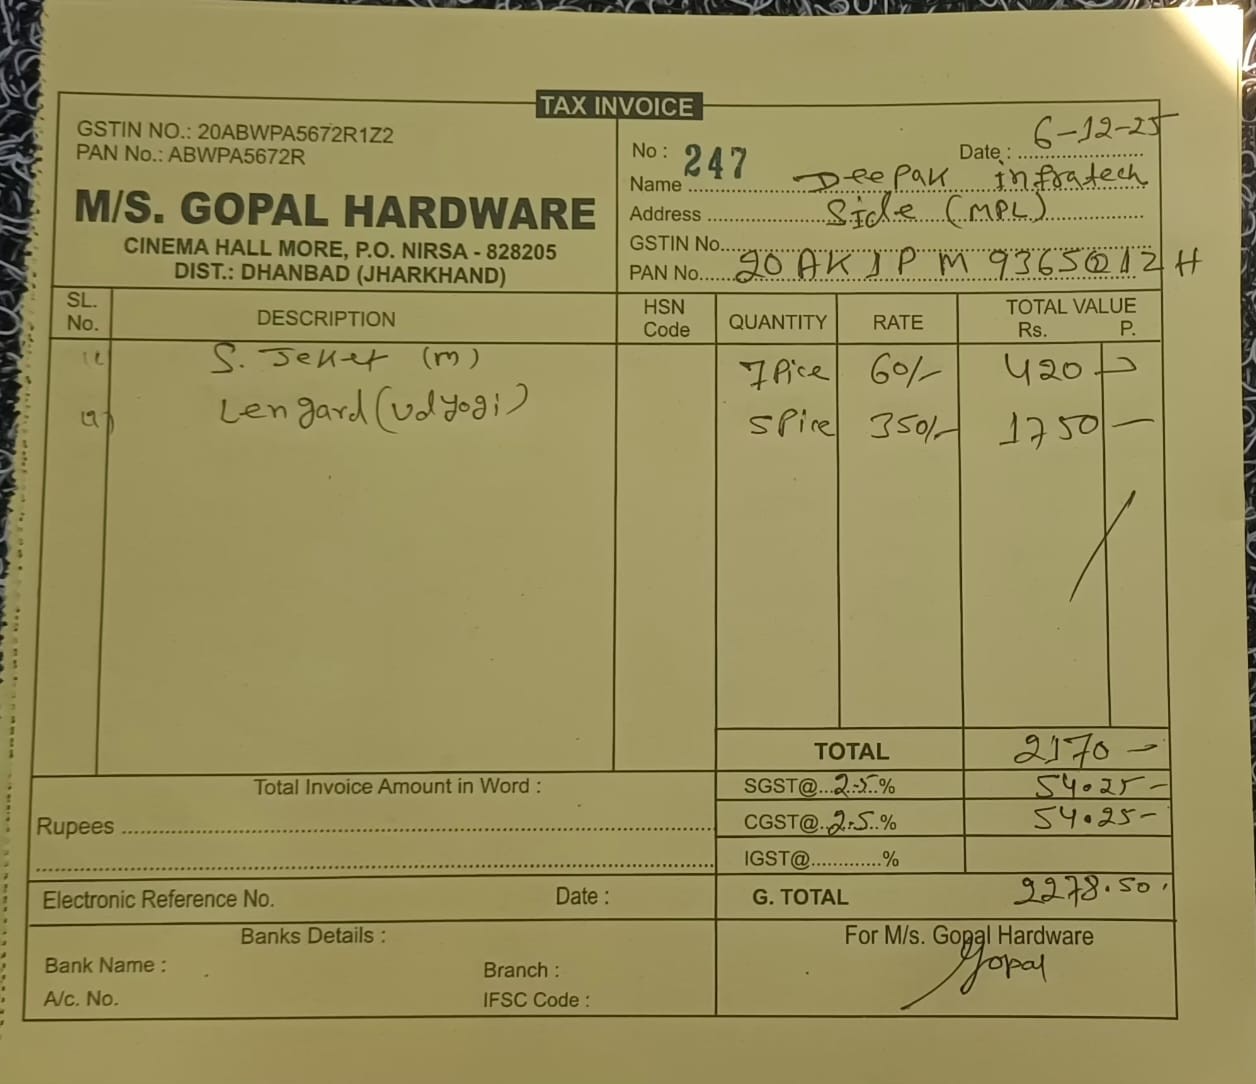 TAX INVOICE
GSTIN NO.: 20ABWPA5672R1Z2
PAN No.: ABWPA5672R
M/S. GOPAL HARDWARE
CINEMA HALL MORE, P.O. NIRSA - 828205
DIST.: DHANBAD (JHARKHAND)
No : 247
Date : 6-12-25
Name Deepak infratech
Address Side (MPL)
GSTIN No.
PAN No. 20 AKJPM 9365
SL. No. DESCRIPTION HSN Code QUANTITY RATE TOTAL VALUE Rs. P.
S. Jeket (m) 7 Pice 60/- 420
Lengard (Udyogi) 5 Pice 350/- 1750 —
TOTAL 2170 —
Total Invoice Amount in Word :
SGST@ 2.5 % 54.25 -
Rupees
CGST@ 2.5 % 54.25 -
IGST@ %
Electronic Reference No. Date :
G. TOTAL 2278.50
Banks Details :
For M/s. Gopal Hardware
Bank Name : Branch :
Gopal
A/c. No. IFSC Code :